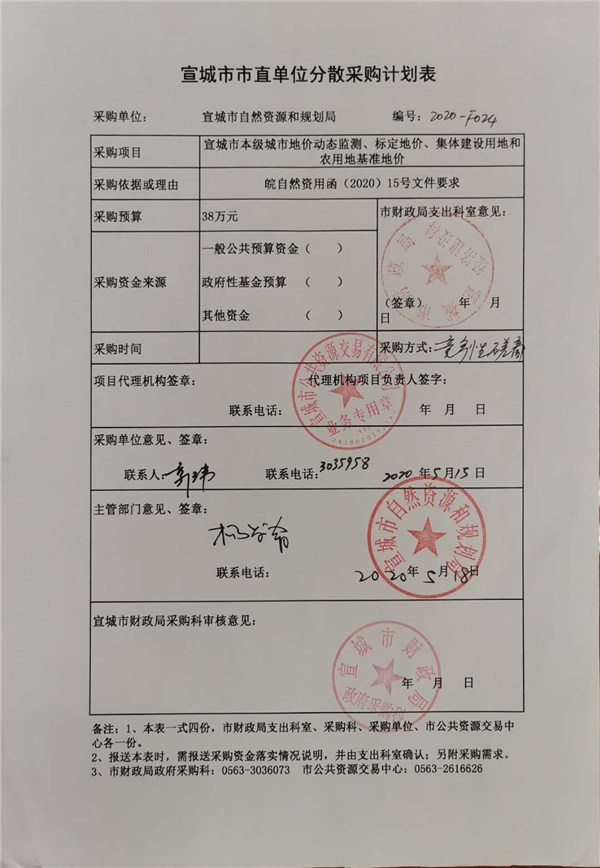 宣城市市直单位分散采购计划表
采购单位: 宣城市自然资源和规划局 编号: 2020-F024
采购项目 宣城市本级城市地价动态监测、标定地价、集体建设用地和
农用地基准地价
采购依据或理由 皖自然资用函（2020）15号文件要求
采购预算 38万元 市财政局支出科室意见:
采购资金来源 一般公共预算资金（ ）
政府性基金预算 （ ）
其他资金 （ ）
（签章） 年 月
日
宣城市财政局
经济建设科
采购时间 采购方式: 竞争性磋商
项目代理机构签章: 代理机构项目负责人签字:
联系电话: 年 月 日
宣城市公共资源交易有限公司
业务专用章
采购单位意见、签章:
联系人: 联系电话: 3035958 2020年5月15日
主管部门意见、签章:
联系电话: 2020年5月18日
宣城市自然资源和规划局
宣城市财政局采购科审核意见:
年 月 日
宣城市财政局
政府采购科
备注: 1、本表一式四份，市财政局支出科室、采购科、采购单位、市公共资源交易中
心各一份。
2、报送本表时，需报送采购资金落实情况说明，并由支出科室确认；另附采购需求。
3、市财政局政府采购科: 0563-3036073 市公共资源交易中心: 0563-2616626